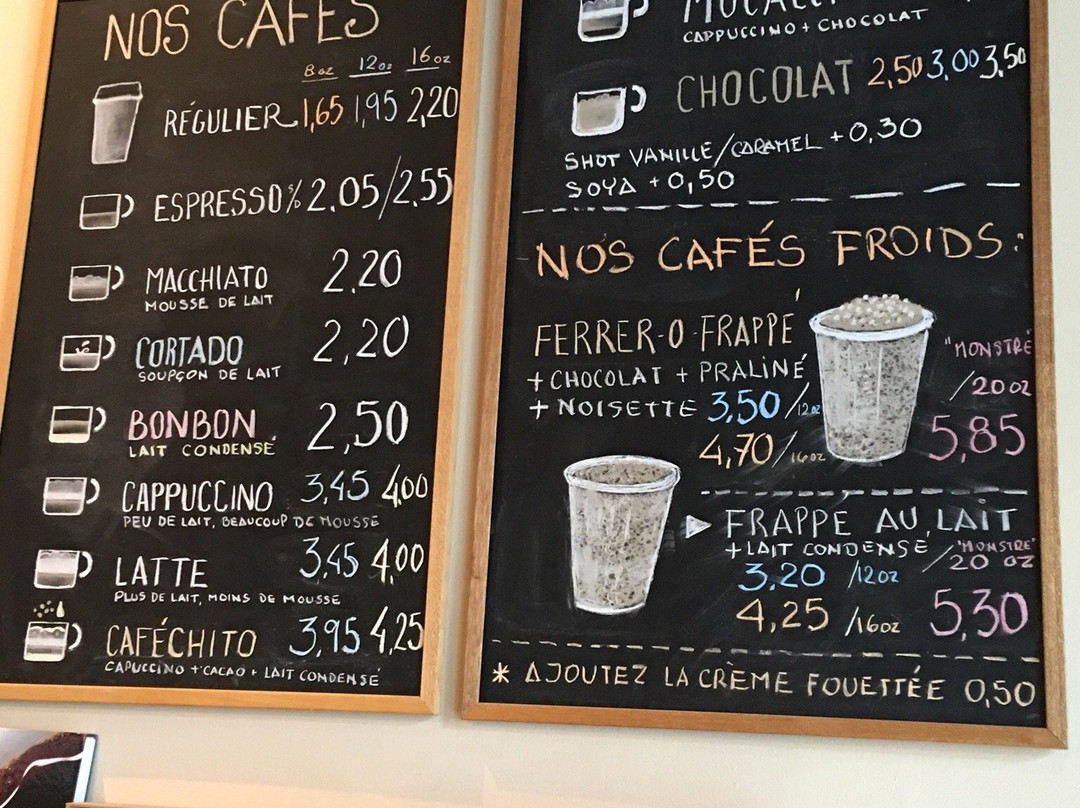 NOS CAFÉS
8oz 12oz 16oz
RÉGULIER 1,65 1,95 2,20
ESPRESSO % 2.05/2,55
MACCHIATO 2,20
MOUSSE DE LAIT
CORTADO 2,20
SOUPÇON DE LAIT
BONBON 2,50
LAIT CONDENSÉ
CAPPUCCINO 3,45 4,00
PEU DE LAIT, BEAUCOUP DE MOUSSE
LATTE 3,45 4,00
PLUS DE LAIT, MOINS DE MOUSSE
CAFÉCHITO 3,95 4,25
CAPUCCINO + CACAO + LAIT CONDENSÉ
CAPPUCCINO + CHOCOLAT
CHOCOLAT 2,50 3,00 3,50
SHOT VANILLE/CARAMEL +0,30
SOYA +0,50
NOS CAFÉS FROIDS:
FERRER-O-FRAPPÉ
+ CHOCOLAT + PRALINÉ
+ NOISETTE 3,50/12oz
4,70/16oz
"MONSTRE"
/20oz
5,85
FRAPPE AU LAIT
+LAIT CONDENSÉ
3,20 /12oz
4,25 /16oz
"MONSTRE"
/20 oz
5,30
* AJOUTEZ LA CRÈME FOUETTÉE 0,50